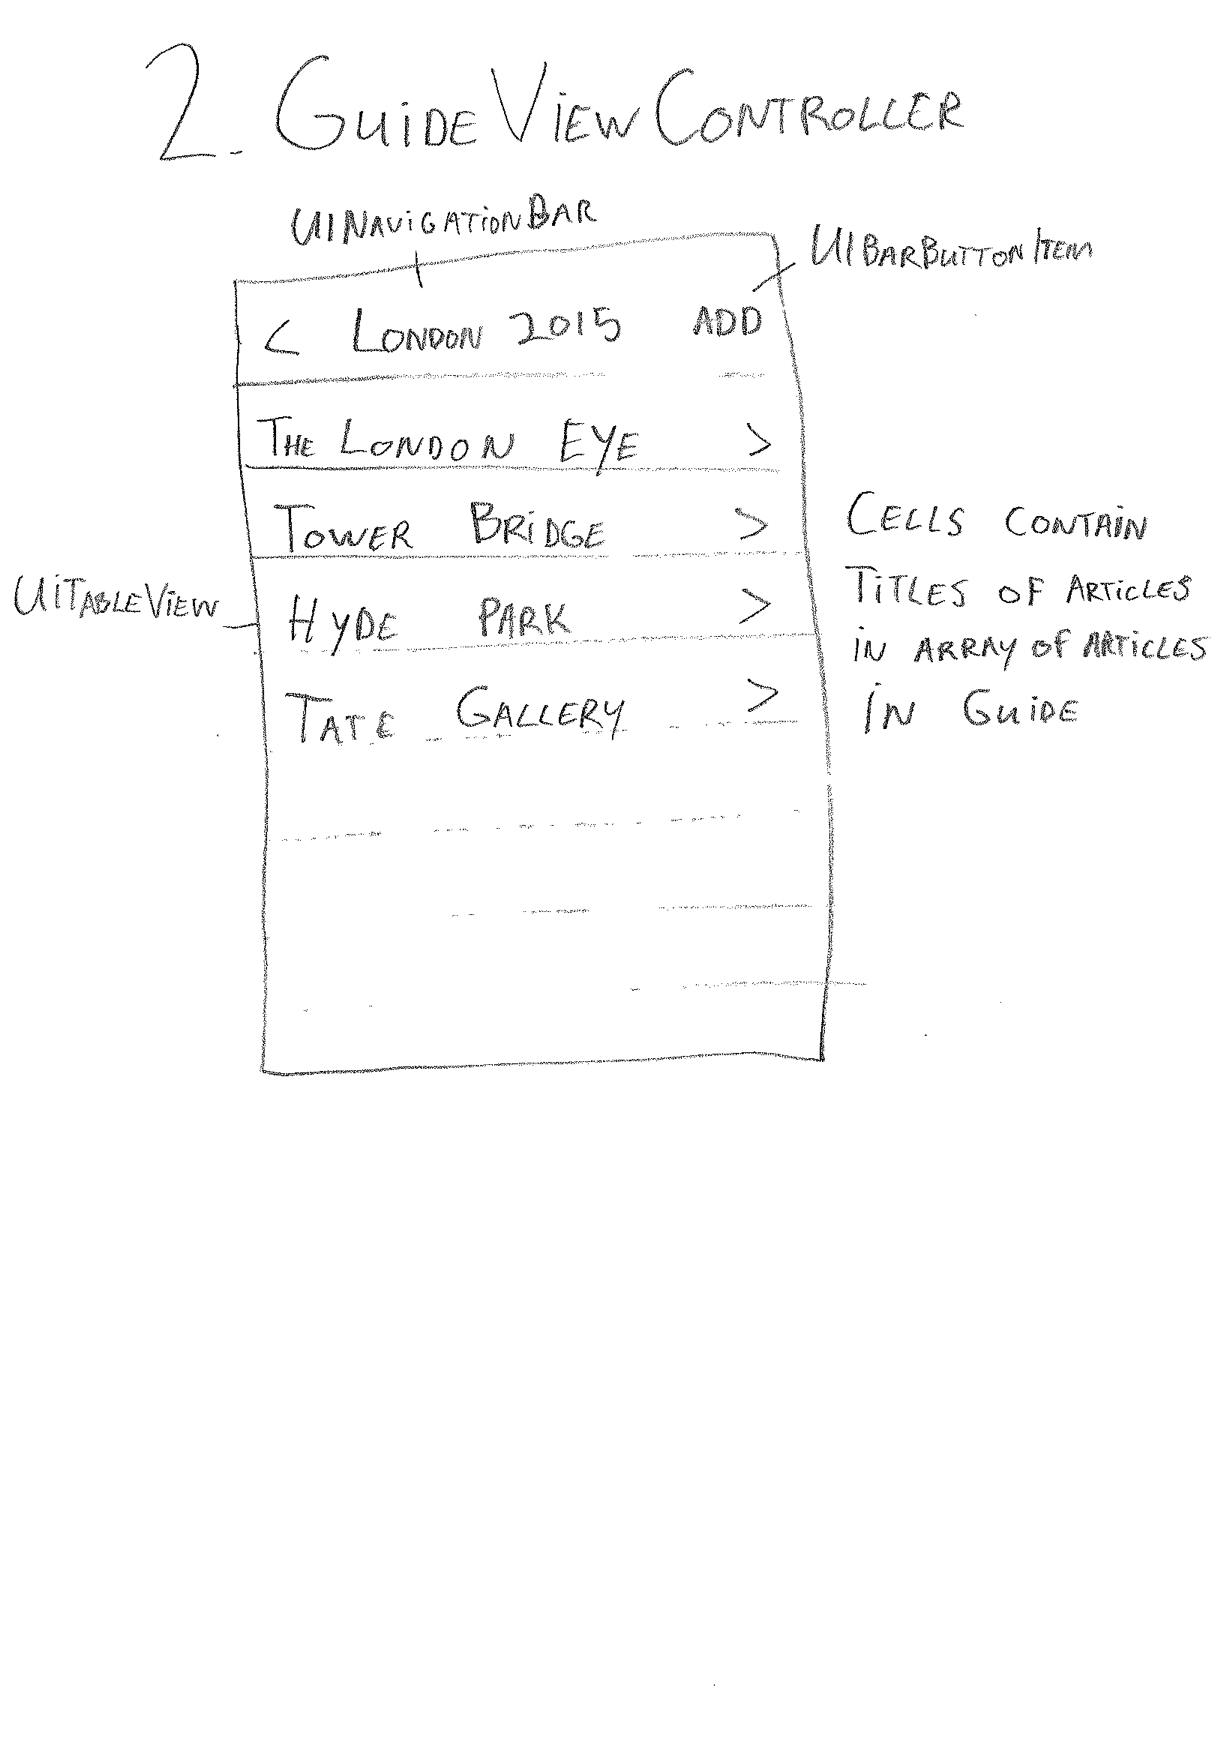 2. GUIDEVIEWCONTROLLER
UINAVIGATIONBAR
UIBARBUTTONITEM
< LONDON 2015 ADD
THE LONDON EYE >
TOWER BRIDGE >
HYDE PARK >
TATE GALLERY >
UITABLEVIEW
CELLS CONTAIN
TITLES OF ARTICLES
IN ARRAY OF ARTICLES
IN GUIDE